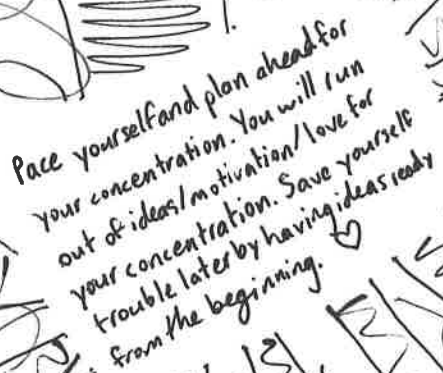 Pace yourself and plan ahead for
your concentration. You will run
out of ideas/motivation/love for
your concentration. Save yourself
trouble later by having ideas ready
from the beginning. ♡